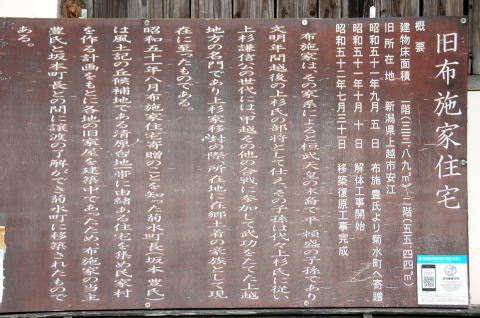 旧布施家住宅
概要
建物床面積 一階(三三八・九㎡)、二階(五五・四四㎡)
旧所在地 新潟県上越市安江
昭和五十一年九月 五 日 布施豊氏より菊水町へ寄贈
昭和五十一年十月 十 日 解体工事開始
昭和五十二年十月三十日 移築復原工事完成
布施家は、その家系によると桓武天皇の末裔で平 頼盛の子孫であり
文明年間越後の上杉氏の部将として仕え、その子孫は代々上杉氏に従い
上杉謙信公の世代には、甲越その他の合戦に参加して武功をたてた上越
地方の名門であり上杉家移学の際、所在地に在郷土着の家族として現
在に至ったものである。
昭和五十一年八月布施家住宅寄贈のことを知った菊水町長(坂本 豊氏)
は風土記の丘候補地である清原台地一帯に由緒ある住宅を集め民家村
を作る計画をもとに各地の旧家屋を建築中であったため、布施家の当主
豊氏と坂本町長との間に譲渡の了解ができ菊水町に移築されたもので
ある。